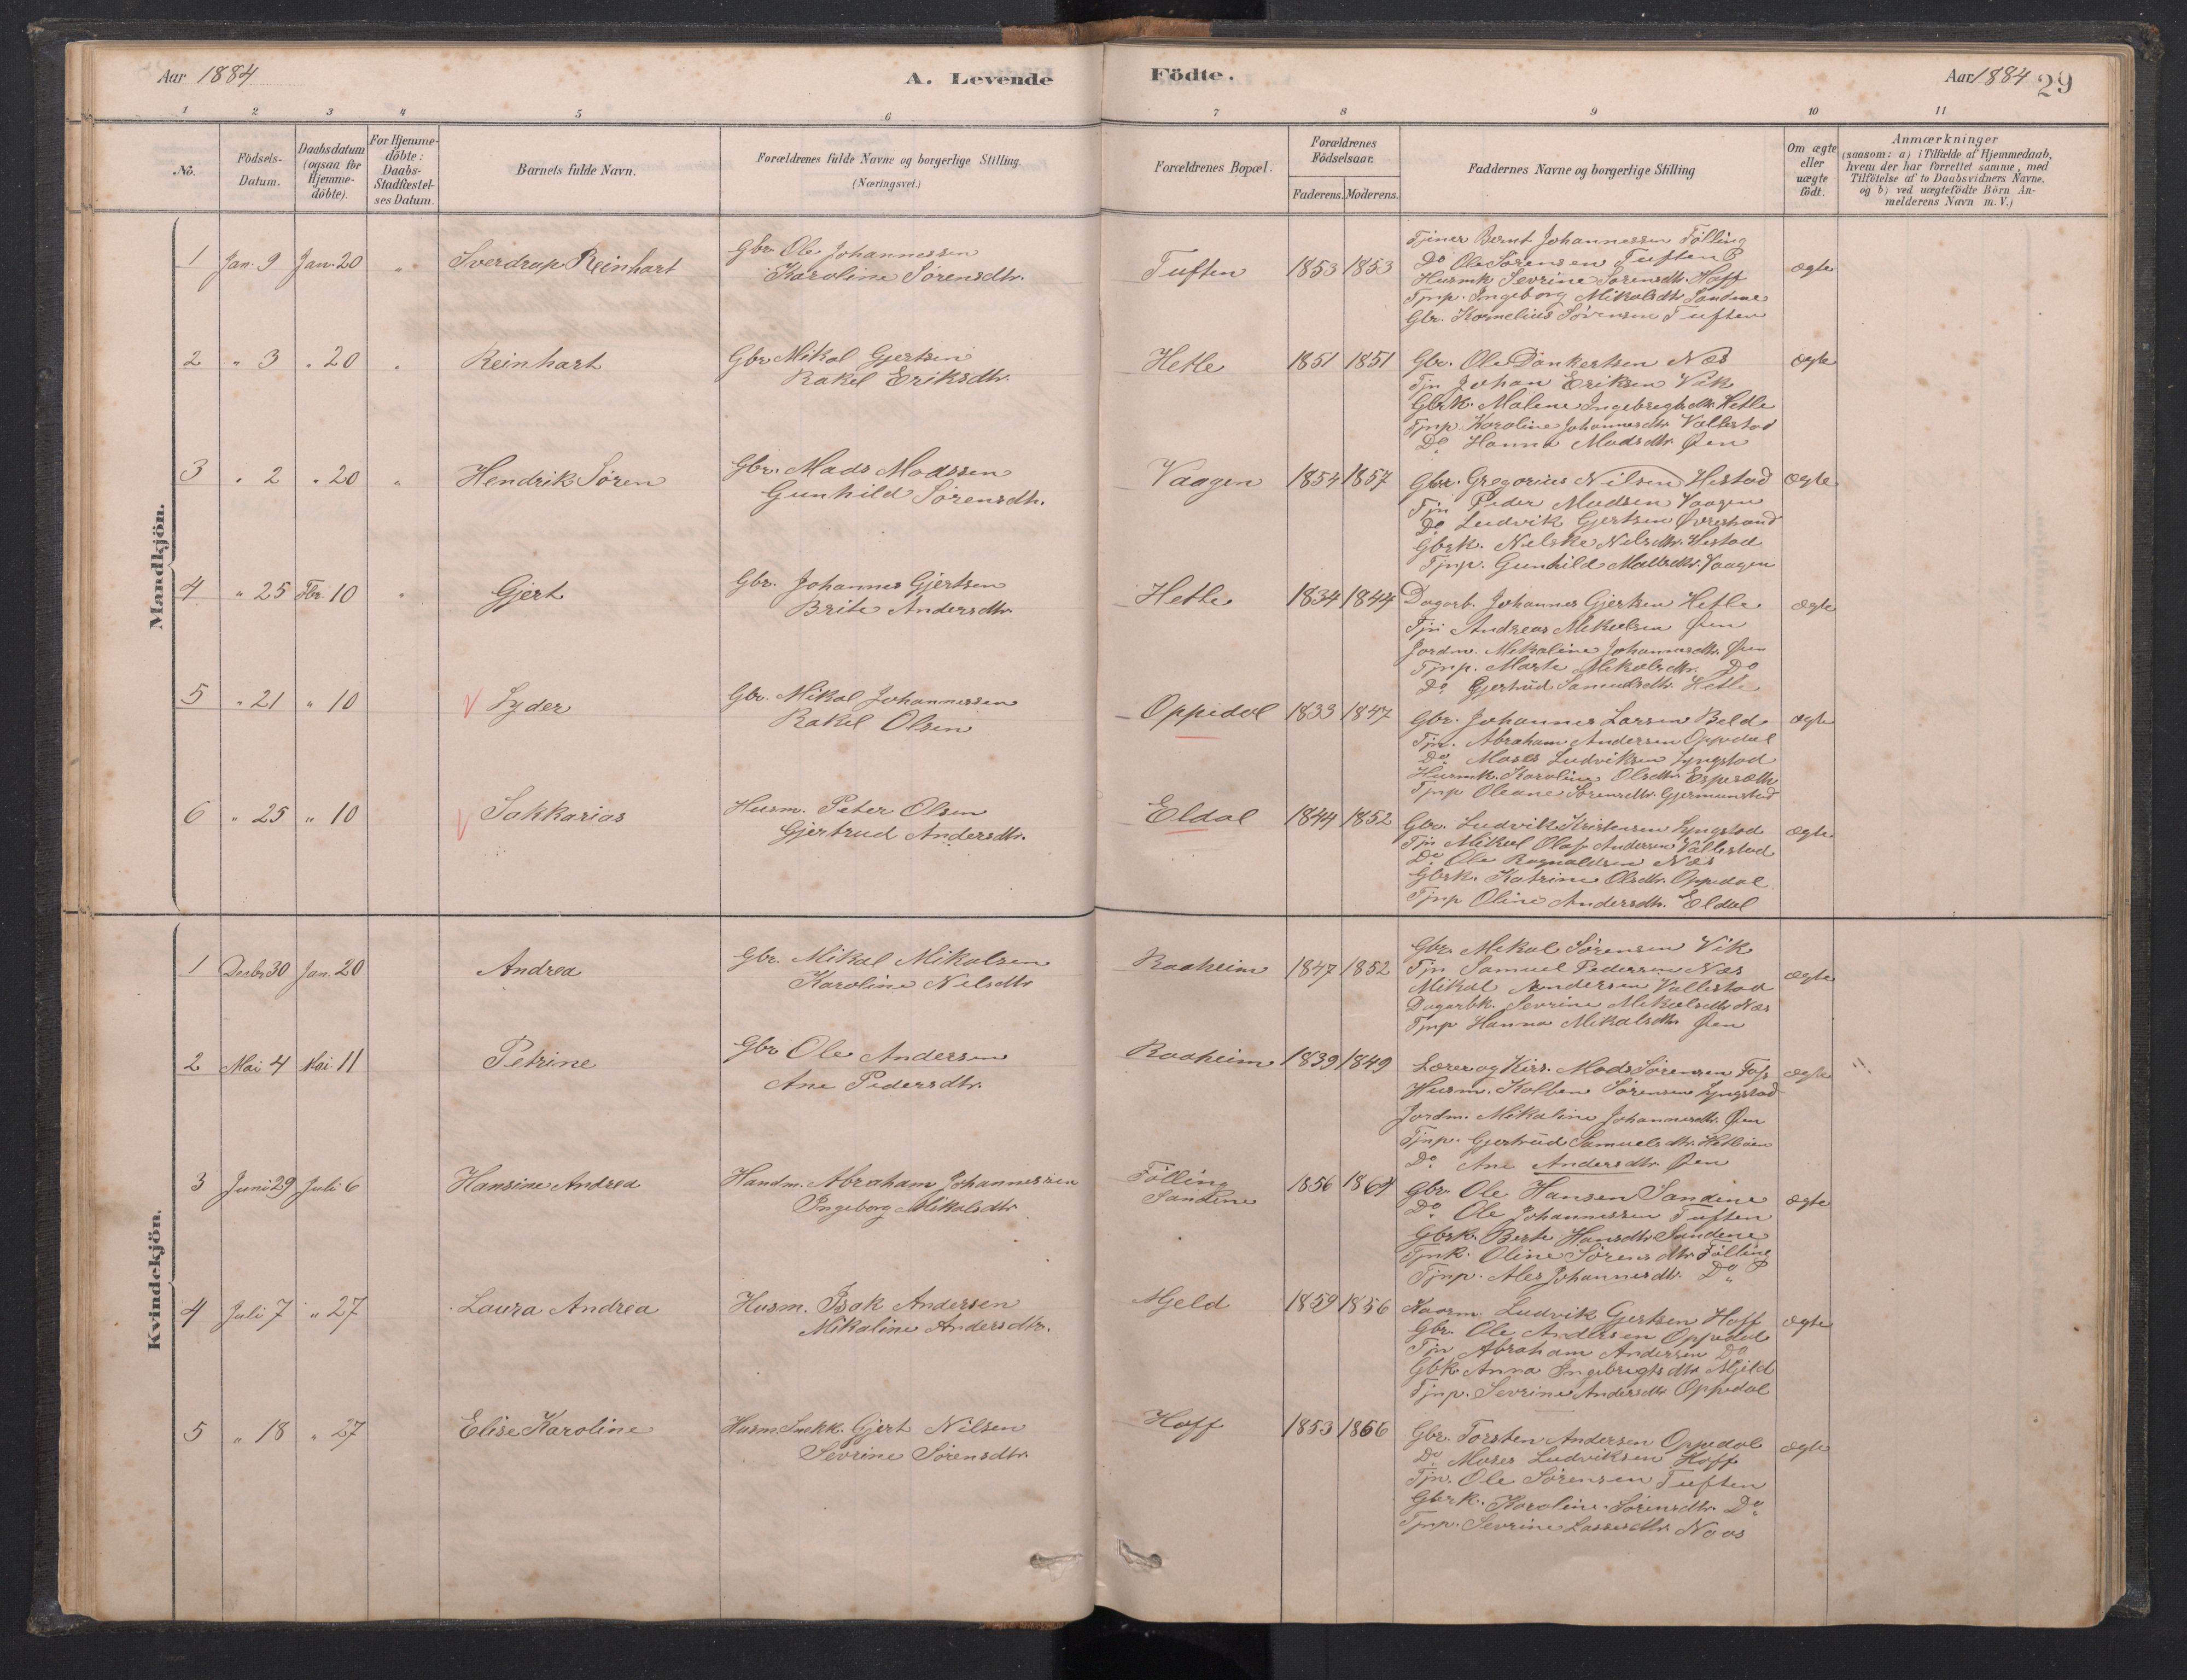 Aar 1884
A. Levende
Födte.
Aar 1884 29
1 2 3 4 5 6 7 8 9 10 11
No.
Födsels-Datum.
Daabsdatum (ogsaa for Hjemme-döbte).
For Hjemme-döbte: Daabs-Stadfæstel-ses Datum.
Barnets fulde Navn.
Forældrenes fulde Navne og borgerlige Stilling.
(Næringsvei.)
Forældrenes Bopæl.
Forældrenes Födselsaar.
Faderens. Moderens.
Faddernes Navne og borgerlige Stilling
Om ægte eller uægte födt.
Anmærkninger
(saasom: a) i Tilfælde af Hjemmedaab,
hvem der har forrettet samme, med
Tilföielse af to Daabsvidners Navne,
og b) ved uægtefödte Börn An-
melderens Navn m. V.)
Mandkjön.
1 Jan. 9 Jan. 20 " Sverdrup Reinhart
Gbr. Ole Johannessen
Karoline Sørensdtr.
Tuften 1853 1853
Tjener Bernt Johannessen Fölling
Do Ole Sørensen Tuften
Husmk Sevrine Sørensdtr. Hoff
Tjnp. Ingeborg Mikalsdtr Sandene
Gbr. Kornelius Sørensen Tuften
ægte
2 " 3 " 20 " Reinhart
Gbr. Mikal Gjertsen
Rakel Eriksdtr.
Hetle 1851 1851
Gbr. Ole Dankertsen Næs
Tjn Johan Eriksen Vik
Gbrk. Malene Ingebregtsdtr. Hetle
Tjnp. Karoline Johannesdtr Vallestad
Do. Hanna Madsdtr. Øen
ægte
3 " 2 " 20 " Hendrik Søren
Gbr. Mads Madssen
Gunhild Sørensdtr.
Vaagen 1854 1857
Gbr. Gregorius Nilsen Hestad
Tjn Peder Madsen Vaagen
Do Ludvik Gjertsen Øvrestrand
Gbrk. Nelske Nelsdtr. Hestad
Tjnp. Gunhild Madsdtr. Vaagen
ægte
4 " 25 Fbr. 10 " Gjert
Gbr. Johannes Gjertsen
Brite Andersdtr.
Hetle 1834 1844
Dagarb. Johannes Gjertsen Hetle
Tjn Andreas Mikalsen Øen
Jordm. Mikaline Johannesdtr. Øen
Tjnp. Marte Mikalsdtr. Do
Do. Gjertrud Samuelsdtr. Hetle
ægte
5 " 21 " 10 Lyder
Gbr. Mikal Johannessen
Rakel Olsen
Oppedal 1833 1847
Gbr. Johannes Larsen Beld
Tjn. Abraham Andersen Oppedal
Do. Moses Ludviksen Lyngstad
Husmk. Karoline Olsdtr. Espesæth
Tjnp Oleane Sørensdtr. Gjermundstad
ægte
6 " 25 " 10 Sakkarias
Husm. Peter Olsen
Gjertrud Andersdtr.
Eldal 1844 1852
Gbr. Ludvik Kristensen Lyngstad
Tjn Mikal Olaf Andersen Vallestad
Do. Ole Ragnaldsen Næs
Gbrk. Katrine Olsdtr. Oppedal
Tjnp Oline Andersdtr. Eldal
ægte
Kvindekjön.
1 Desbr 30 Jan. 20 Andrea
Gbr. Mikal Mikalsen
Karoline Nelsdtr
Raaheim 1847 1852
Gbr. Mikal Sørensen Vik
Tjn Samuel Pedersen Næs
Mikal Andersen Vallestad
Dagarbk. Sevrine Mikalsdtr Næs
Tjnp Hanna Mikalsdtr Øen
ægte
2 Mai 4 Mai 11 Petrine
Gbr Ole Andersen
Ane Pedersdtr.
Raaheim 1839 1849
Lærer og Kirs. Mads Sørensen Fos
Husm. Kolben Sørensen Lyngstad
Jordm. Mikaline Johannesdtr. Øen
Tjnp. Gjertrud Samuelsdtr. Hetleøen
Do. Ane Andersdtr. Øen
ægte
3 Juni 29 Juli 6 Hansine Andrea
Handm. Abraham Johannessen
Ingeborg Mikalsdtr
Fölling
Sandene 1856 1864
Gbr. Ole Hansen Sandene
Do. Ole Johannessen Tuften
Gbrk. Berte Hansdtr. Sandene
Tjnk. Oline Sørensdtr. Fölling
Tjnp. Ales Johannesdtr. Do
ægte
4 Juli 7 " 27 Laura Andrea
Husm. Isak Andersen
Mikaline Andersdtr.
Mjeld 1859 1856
Kaarm. Ludvik Gjertsen Hoff
Gbr. Ole Andersen Oppedal
Tjn Abraham Andersen Do
Gbk. Anna Ingebregtsdtr Mjeld
Tjnp. Sevrine Andersdtr Oppedal
ægte
5 " 18 " 27 Elise Karoline
Husm. Snekk. Gjert Nilsen
Sevrine Sørensdtr.
Hoff 1853 1856
Gbr. Torsten Andersen Oppedal
Do. Moses Ludviksen Hoff
Tjn. Ole Sørensen Tuften
Gbrk. Karoline Sørensdtr. Do
Tjnp. Sevrine Lassesdtr. Naas
ægte